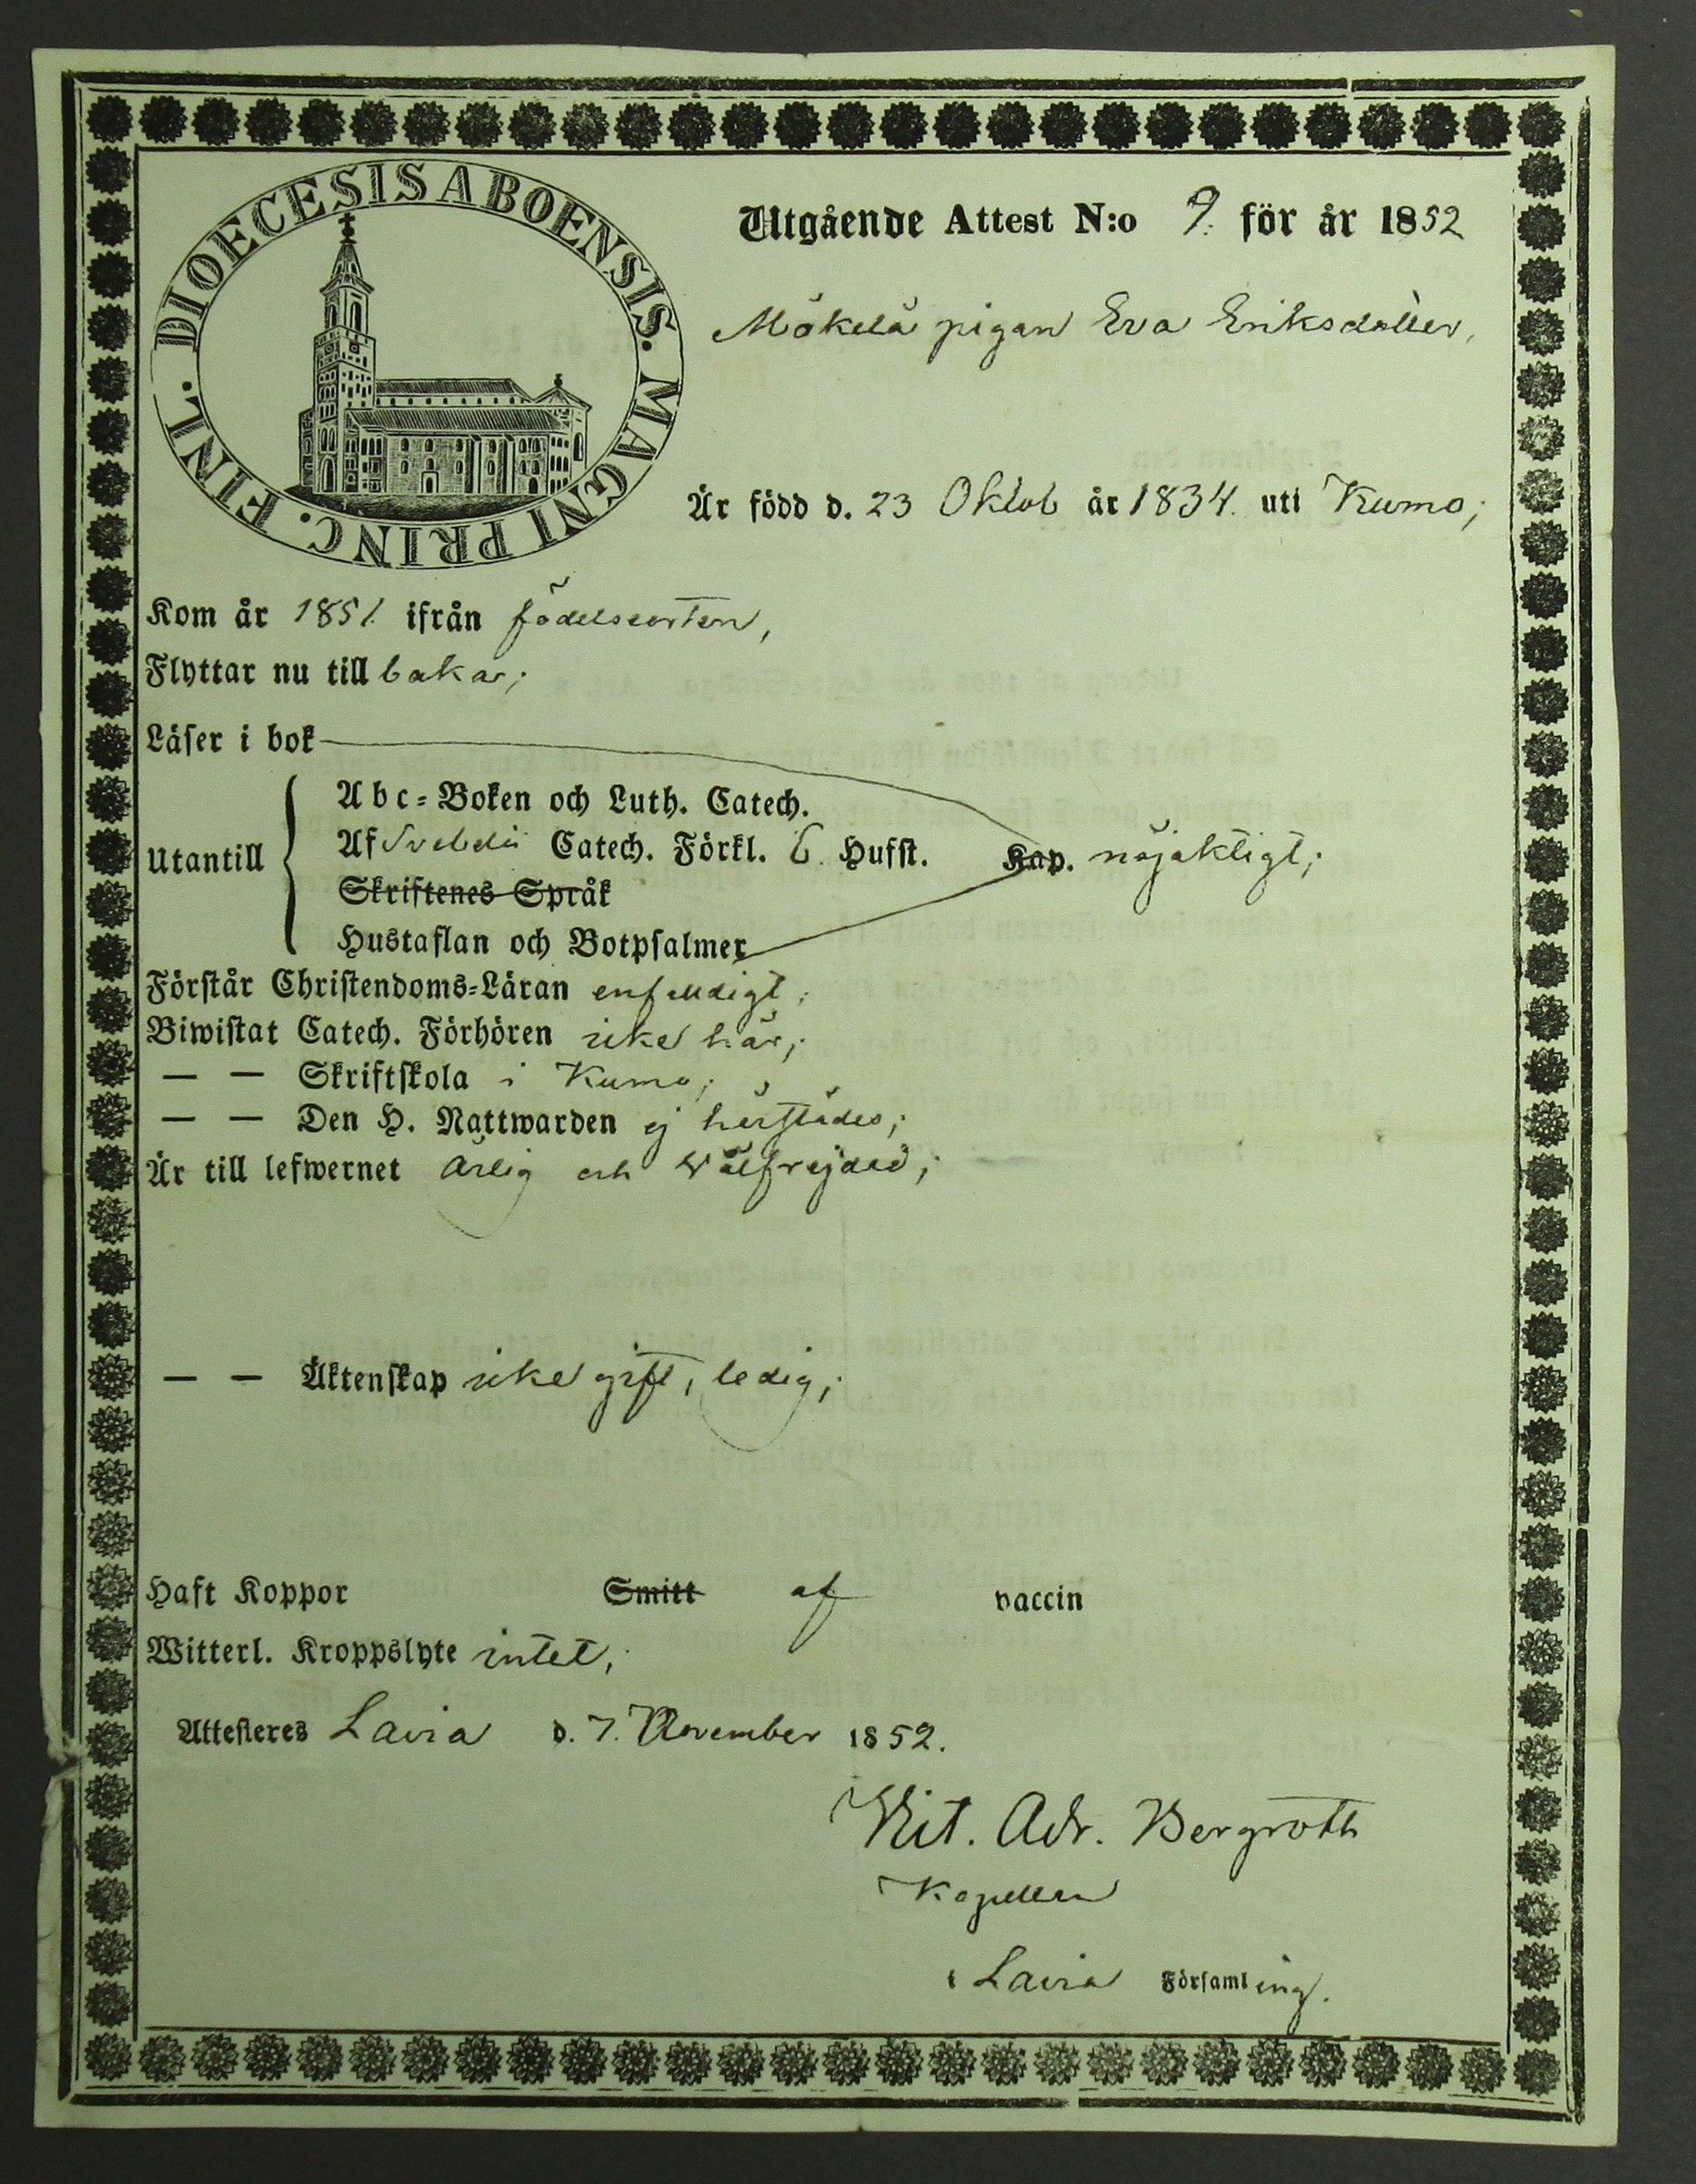 DIOECESIS ABOENSIS. MAGNI PRINC. FINL.
Utgående Attest N:o 9. för år 1852
Mäkelä pigan Eva Eriksdotter,
Är född d. 23 Oktob år 1834. uti Kumo;
Kom år 1851. ifrån födelseorten,
Flyttar nu till bakas;
Läser i bok
Utantill
Abc-Boken och Luth. Catech.
Af Svebelii Catech. Förkl. 6. Hufst. Kap. nöjaktigt;
Skriftenes Språk
Hustaflan och Botpsalmer
Förstår Christendoms-Läran enfaldigt;
Biwistat Catech. Förhören icke här;
— — Skriftskola i Kumo;
— — Den H. Nattwarden ej härstädes;
Är till lefwernet ärlig och wälfrejdad;
— — Äktenskap icke gift, ledig;
Haft Koppor Smitt af vaccin
Witterl. Kroppslyte intet,
Attesteres Lavia d. 7. November 1852.
Vit. Adr. Bergroth
Kapellan
i Lavia Församling.